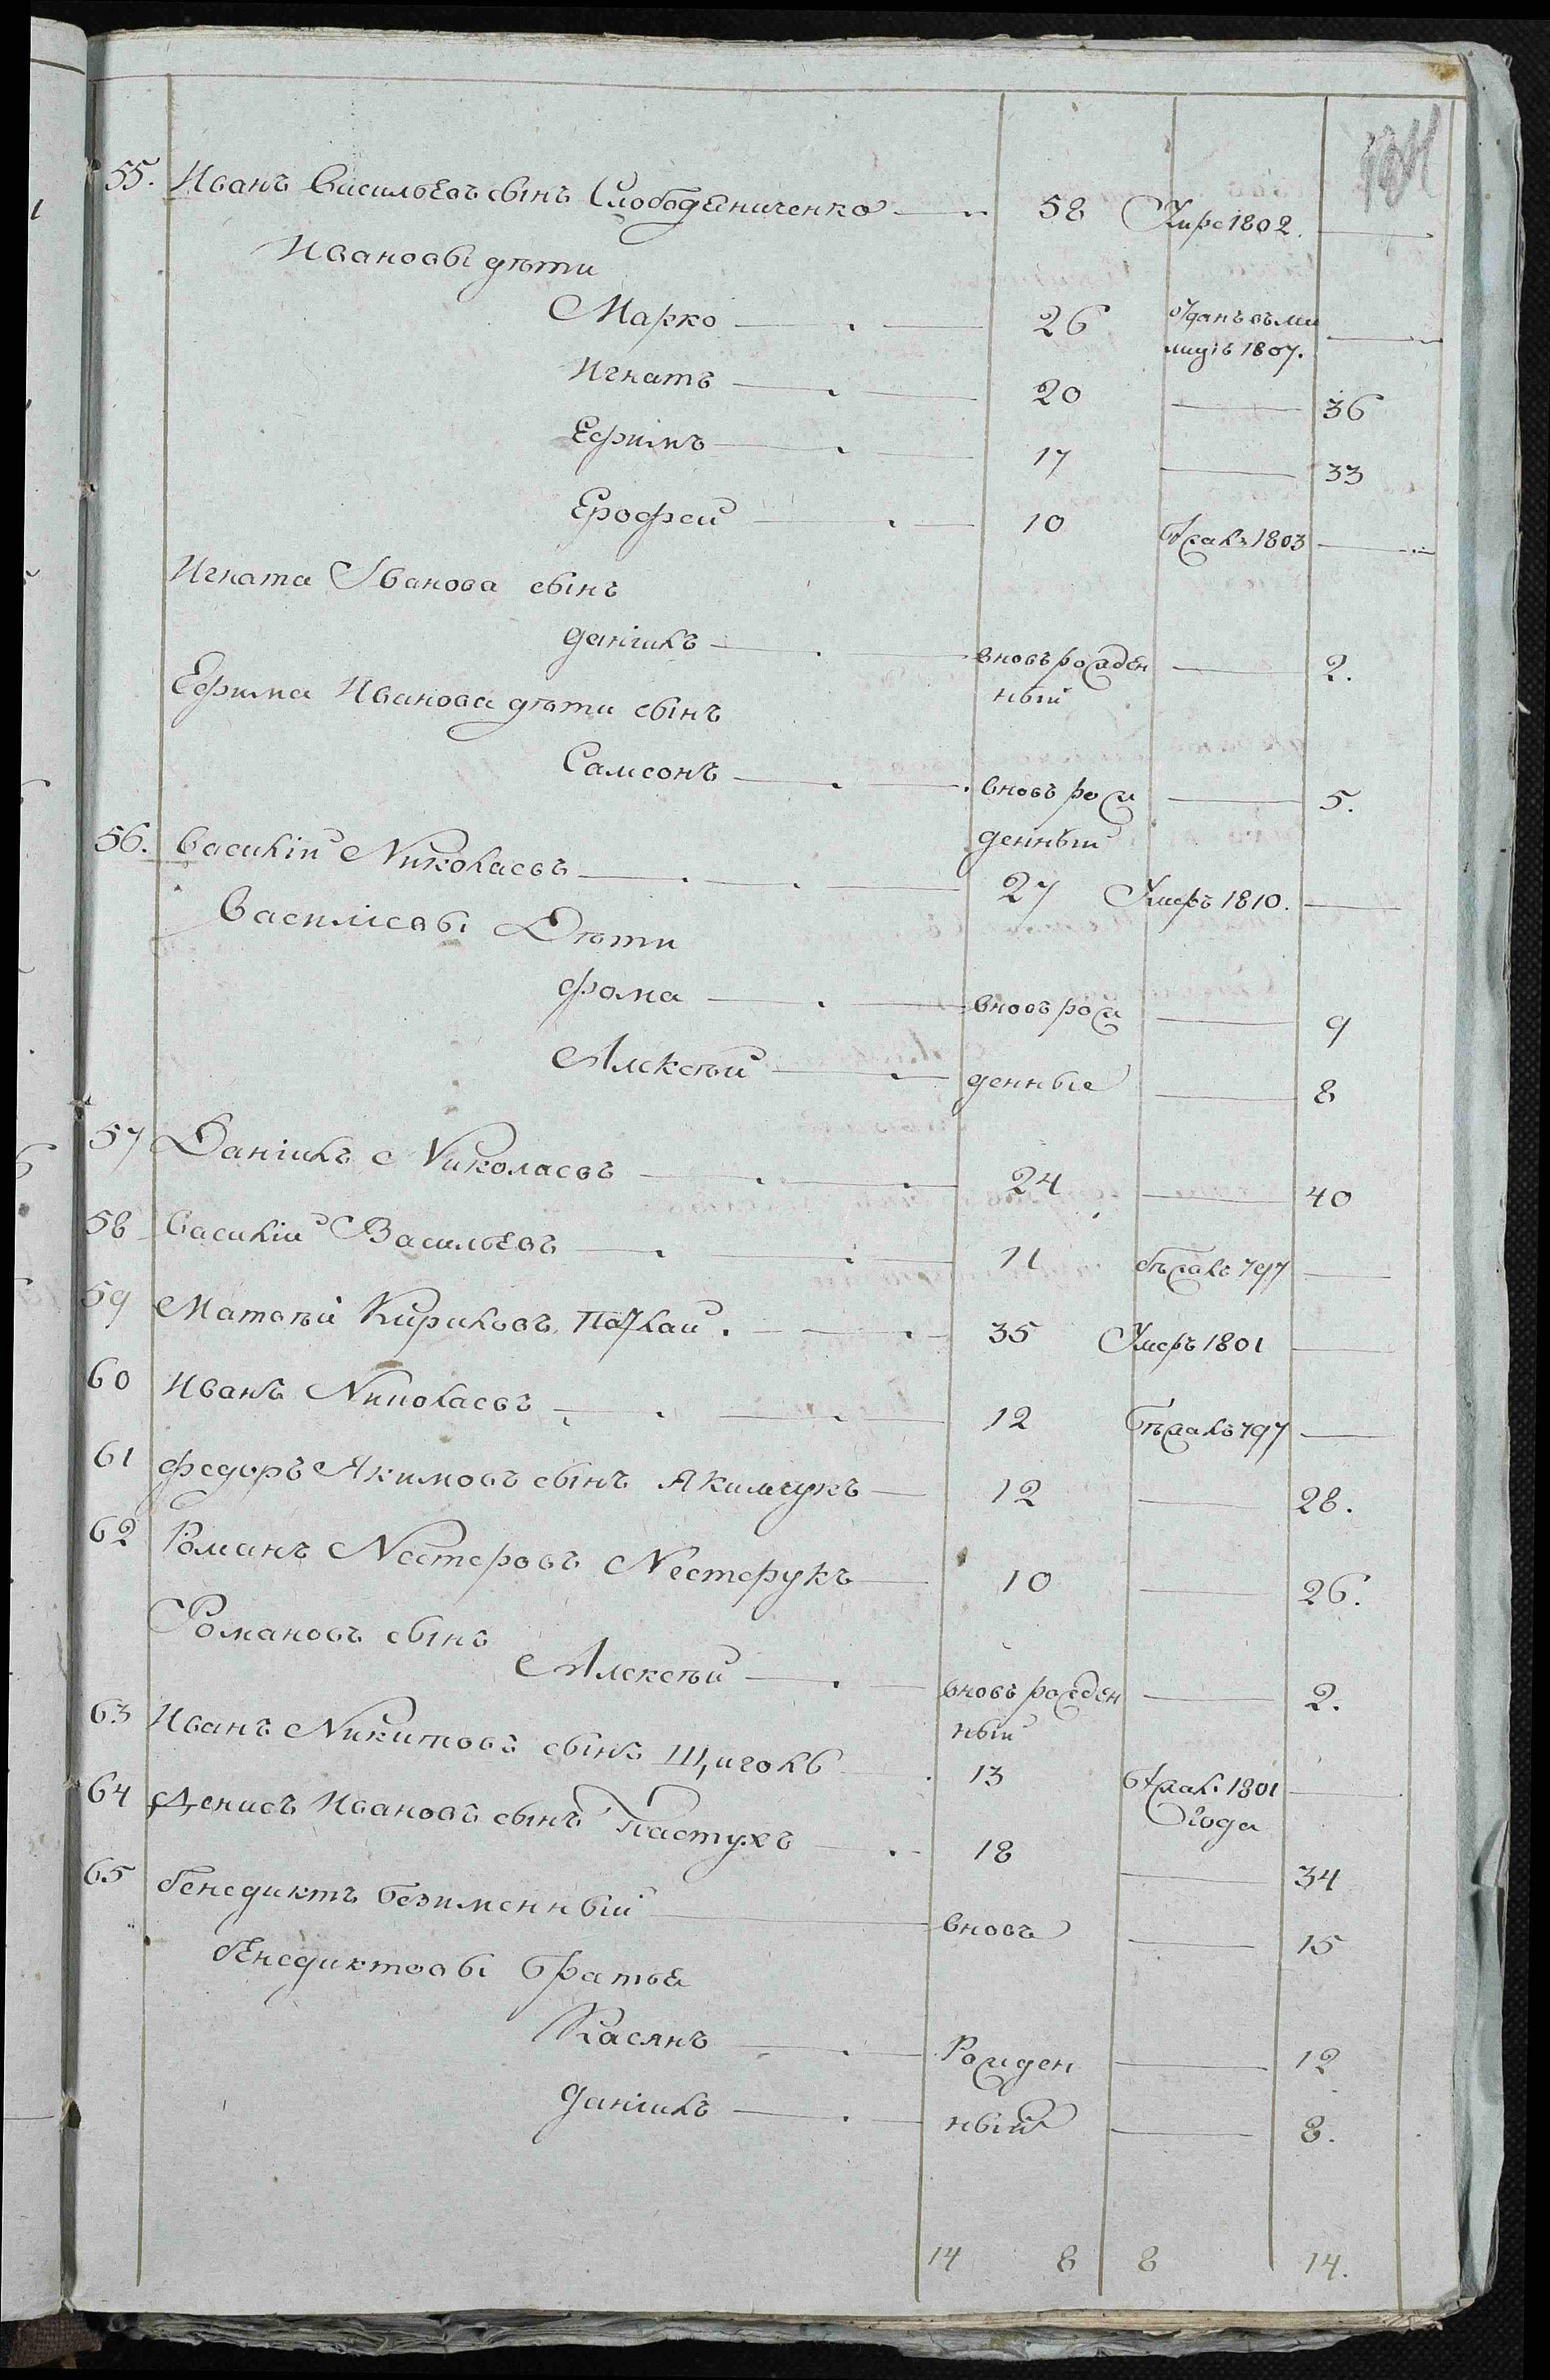 55. Иванъ Васильевъ сынъ Слободяниченко 58 Умре 1802.
Ивановы дѣти
Марко 26 отданъ въ ми
лицiѣ 1807.
Игнатъ 20 36
Ефимъ 17 33
Ерофей 10 бѣжалъ 1803
Игната Иванова сынъ
данiилъ вновьрожден 2.
ный
Ефима Иванова дѣти сынъ
Самсонъ вновь рож 5.
денный
56. Василiй Николаевъ 27 Умеръ 1810.
Василiевы Дѣти
фома вновь рож 9
Алексѣй денные 8
57 Данiилъ Николаевъ 24 40
58 Василiй Васильевъ 11 бѣжалъ 797
59 Матвѣй Кириловъ 35 Умеръ 1801
60 Иванъ Николаевъ 12 бѣжалъ 797
61 федоръ Якимовъ сынъ Якимчукъ 12 28.
62 Романъ Нестеровъ Нестерукъ 10 26.
Романовъ сынъ
Алексѣй вновь рожден 2.
ный
63 Иванъ Никитовъ сынъ Щиголь 13 бѣжалъ 1801
года
64 Денисъ Ивановъ сынъ Пастухъ 18 34
65 Бенедиктъ безименный вновь 15
Бенедиктовы братья
Касянъ Рожден 12
данiилъ ный 8.
14 8 8 14.